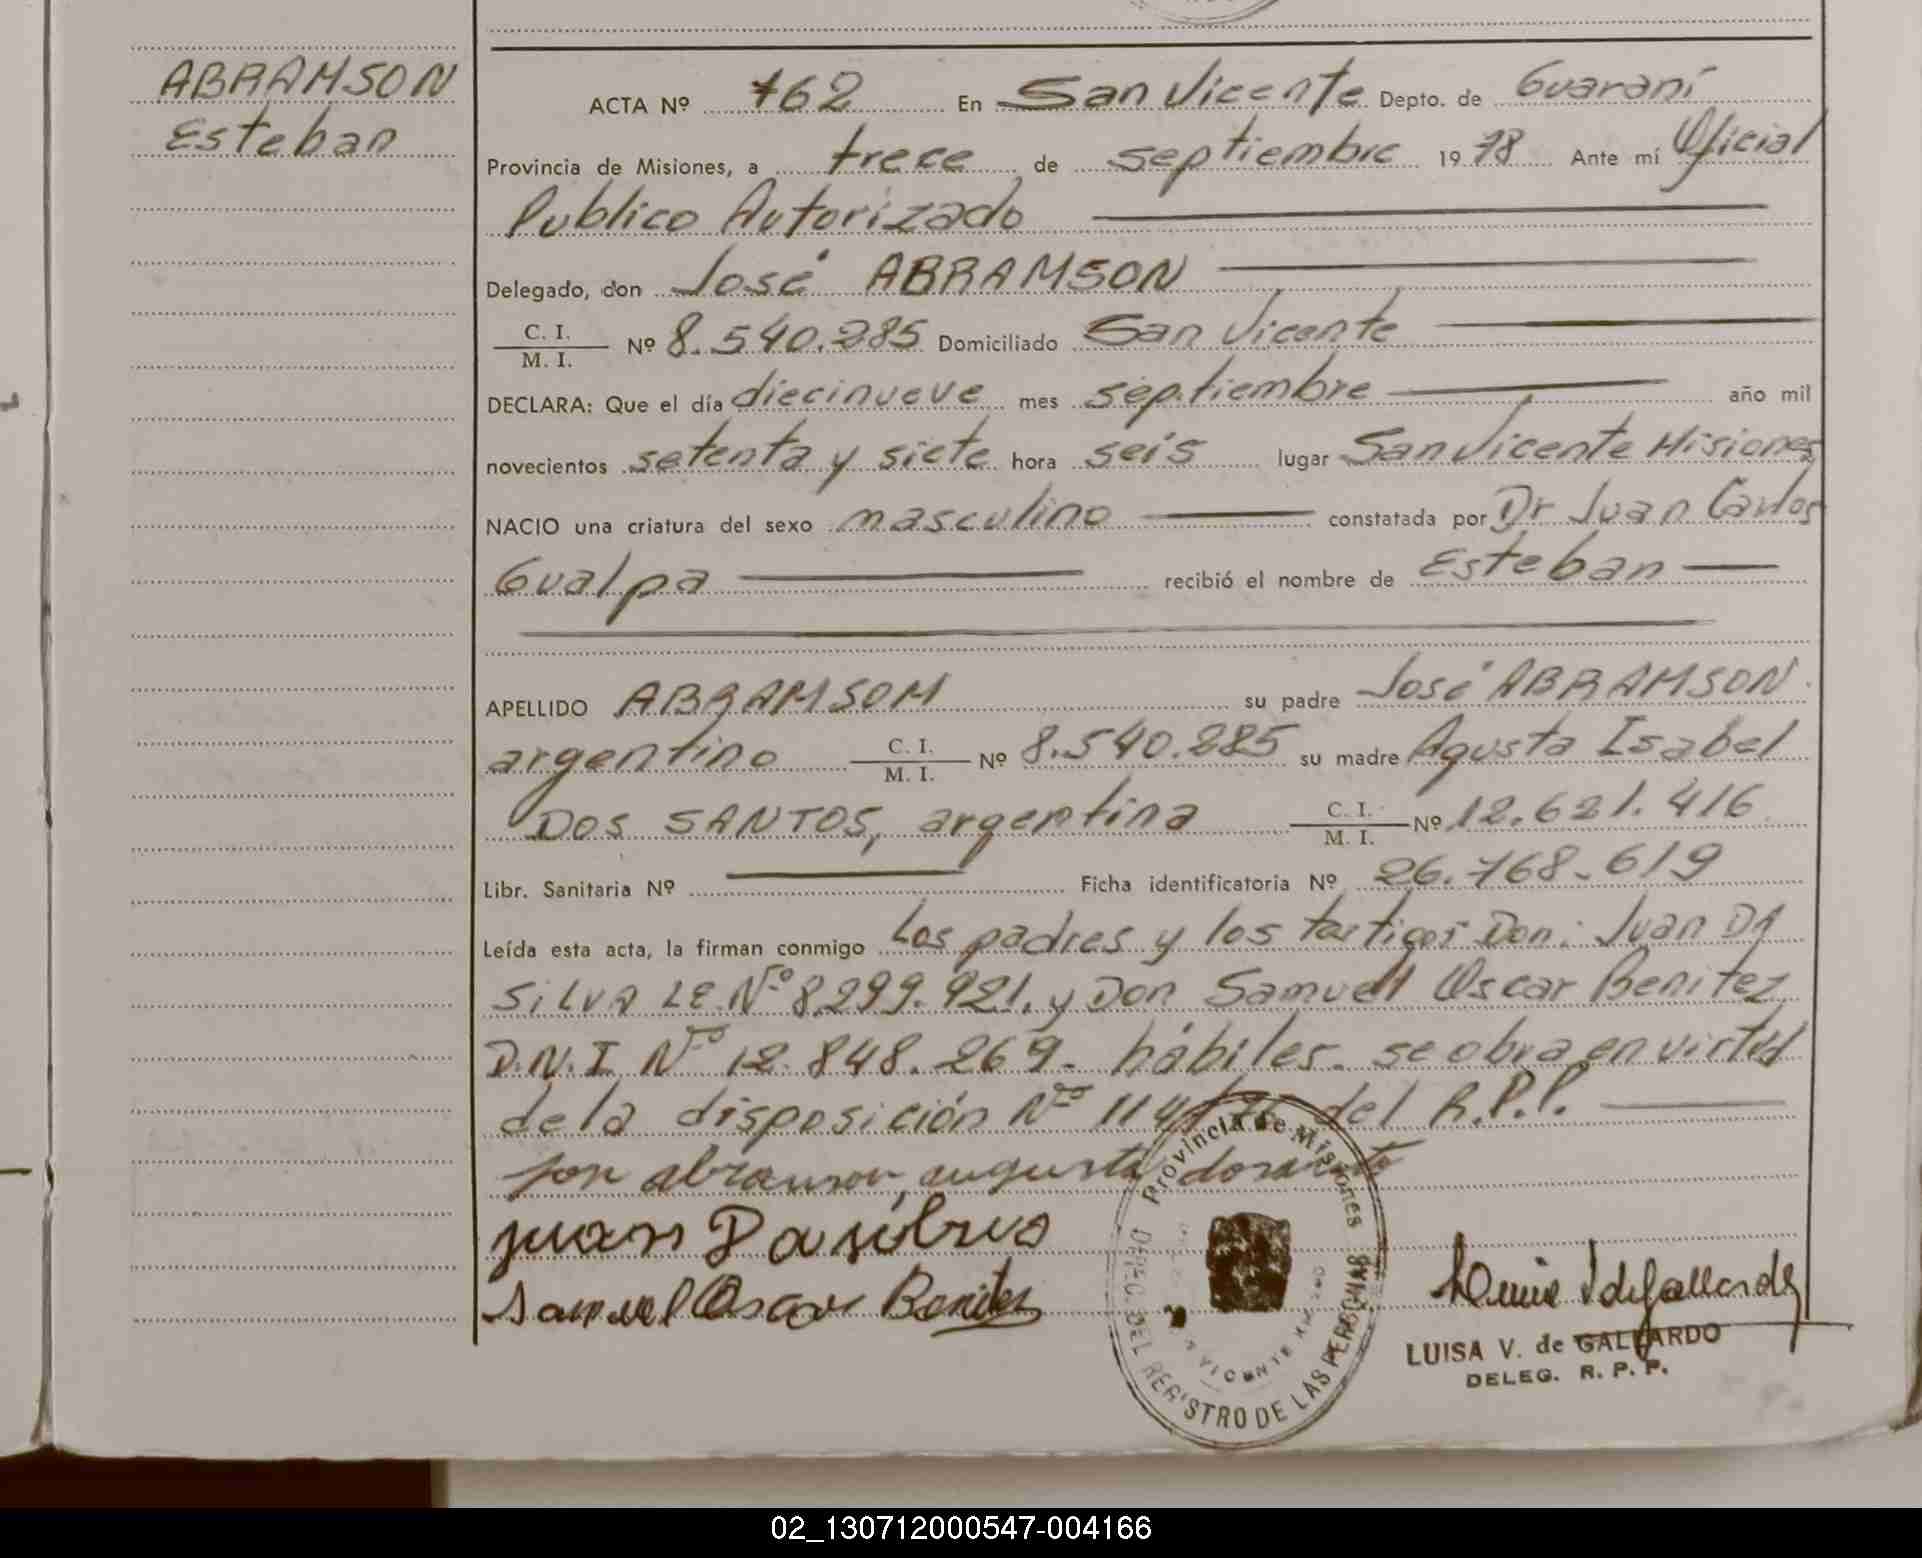 ABRAMSON
Esteban
ACTA Nº 762 En San Vicente Depto. de Guaraní
Provincia de Misiones, a trece de septiembre 19 78 Ante mí Oficial
Publico Autorizado
Delegado, don José ABRAMSON
C. I.
M. I.
Nº 8.540.285 Domiciliado San Vicente
DECLARA: Que el día diecinueve mes septiembre año mil
novecientos setenta y siete hora seis lugar San Vicente Misiones
NACIO una criatura del sexo masculino constatada por Dr Juan Carlos
Gualpa recibió el nombre de Esteban
APELLIDO ABRAMSOM su padre José ABRAMSON
argentino C. I. M. I. Nº 8.540.285 su madre Agusta Isabel
DOS SANTOS, argentina C. I. M. I. Nº 12.621.416
Libr. Sanitaria Nº Ficha identificatoria Nº 26.768.619
Leída esta acta, la firman conmigo Los padres y los testigos Don: Juan DA
SILVA LE.Nº 8.299.921. y Don Samuel Oscar Benitez
D.N.I Nº 12.848.269- hábiles- se obra en virtud
de la disposición Nº del R.P.P.
abramson augusta dosanto
juan Dasilva
Samuel Oscar Benitez
Provincia de Misiones
DIREC. DEL REGISTRO DE LAS PERSONAS
LUISA V. de GALLARDO
DELEG. R. P. P.
02_130712000547-004166